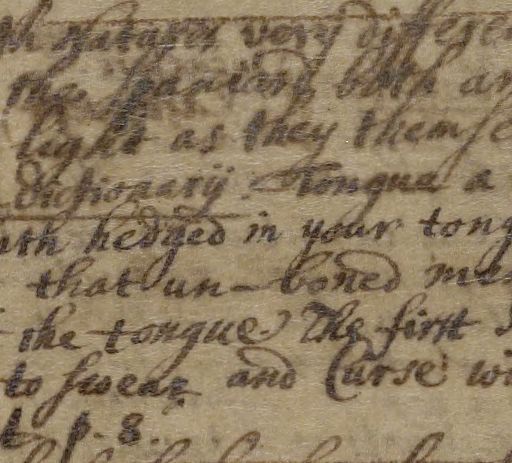 Natures very differen
the Spaniard both ar
light as they themse
dictionary. Tongue a
ath hedged in your tong
that un-boned me
the tongue. The first
to swear and Curse wi
t p. 8.